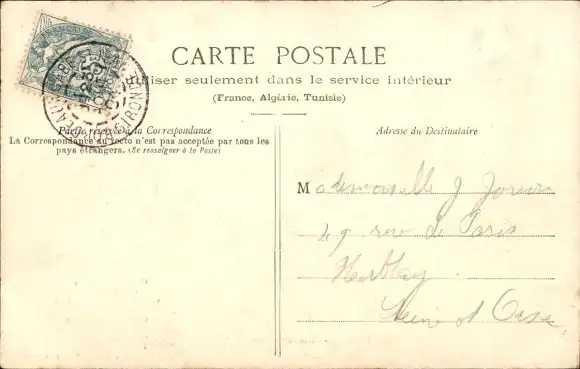 CARTE POSTALE
utiliser seulement dans le service intérieur
(France, Algérie, Tunisie)
Partie réservée à la Correspondance
La Correspondance au recto n'est pas acceptée par tous les
pays étrangers. (Se renseigner à la Poste)
Adresse du Destinataire
Mademoiselle J
29 rue de Paris
Herblay
Seine et Oise